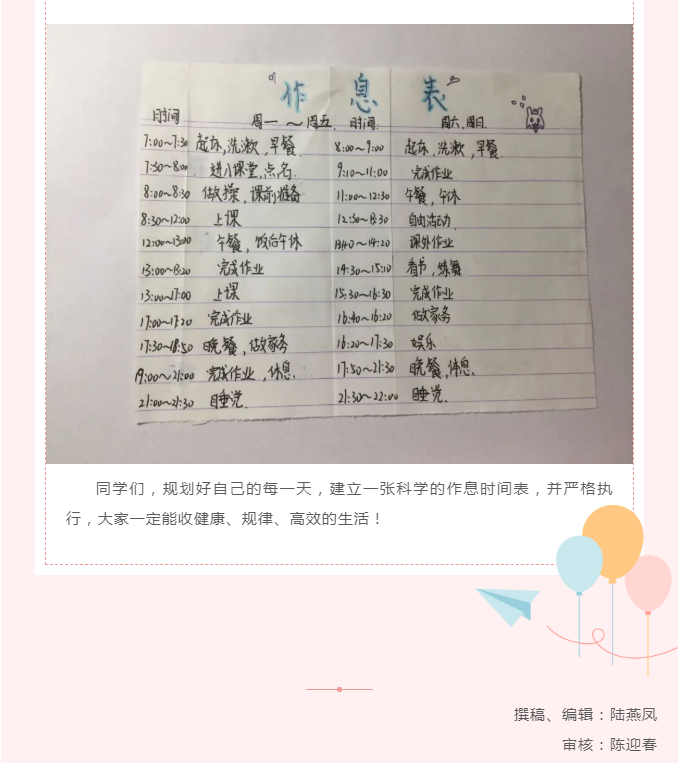 作 息 表
时间 周一 ～ 周五. 时间. 周六.周日.
7:00～7:30 起床,洗漱,早餐. 8:00～9:00 起床,洗漱,早餐.
7:30～8:00 进入课堂,点名. 9:10～11:00 完成作业
8:00～8:30 做操,课前准备 11:00～12:30 午餐,午休
8:30～12:00 上课 12:30～13:30 自由活动.
12:00～13:00 午餐,饭后午休 13:40～14:20 课外作业
13:00～13:20 完成作业 14:30～15:10 看书,练舞
13:00～17:00 上课 15:30～16:30 完成作业
17:00～17:20 完成作业 16:40～16:20 做家务
17:30～18:50 晚餐,做家务 16:20～17:30 娱乐
19:00～21:00 完成作业,休息. 17:50～21:30 晚餐,休息.
21:00～21:30 睡觉. 21:30～22:00 睡觉.
同学们，规划好自己的每一天，建立一张科学的作息时间表，并严格执
行，大家一定能收健康、规律、高效的生活！
撰稿、编辑：陆燕凤
审核：陈迎春